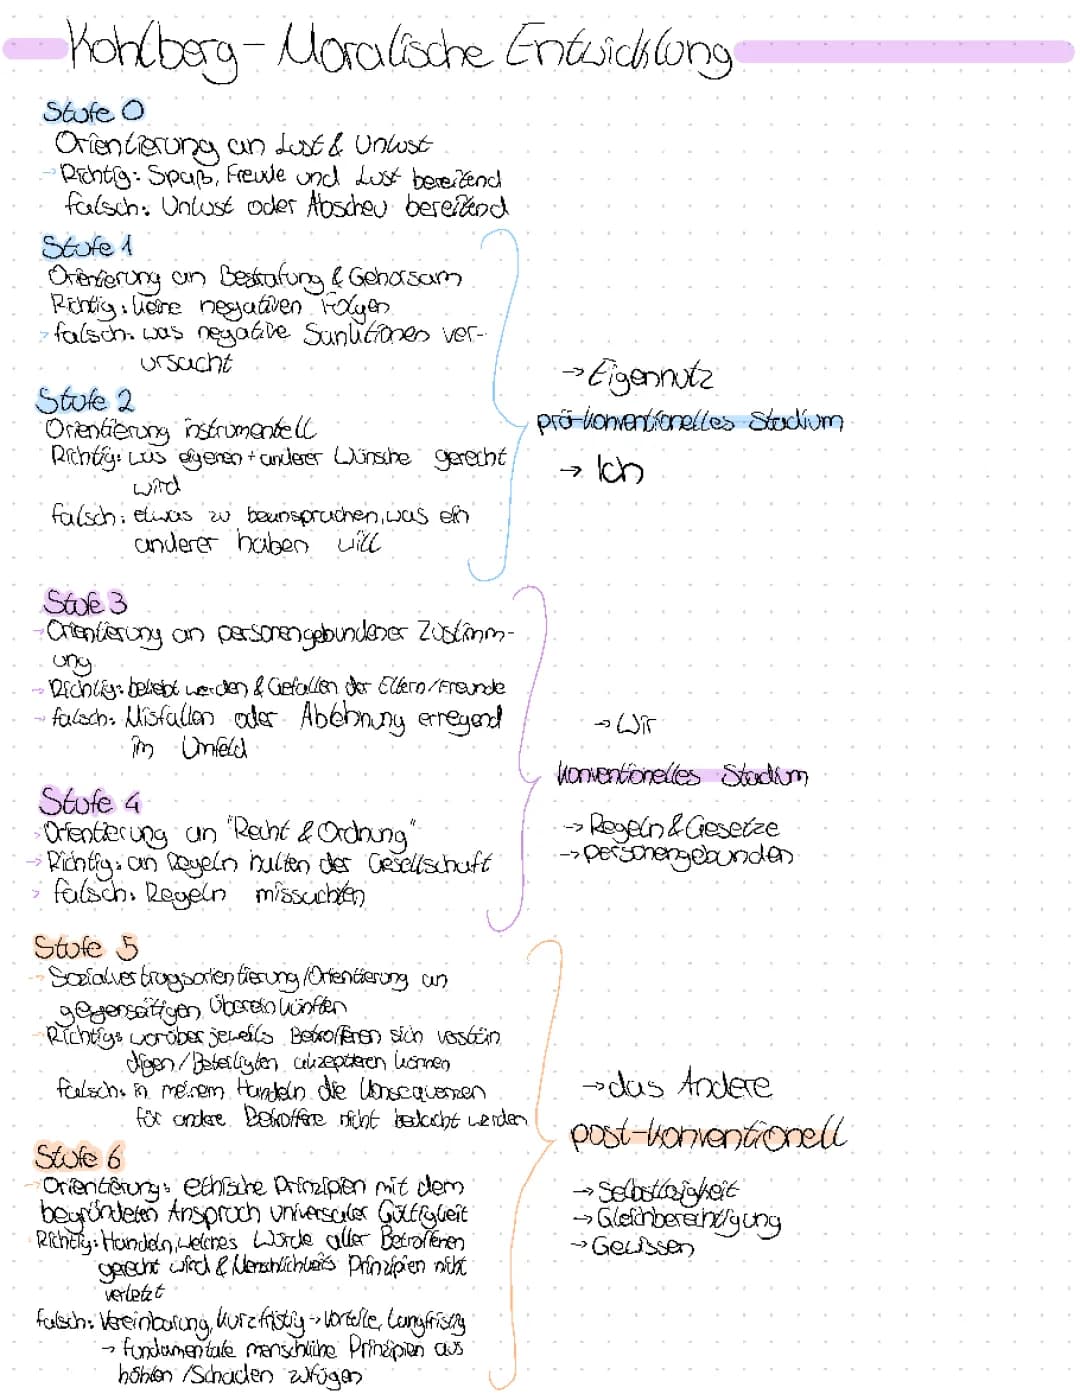 Kohlberg - Moralische Entwicklung
Stufe 0
Orientierung an Lust & Unlust
→ Richtig: Spaß, Freude und Lust bereitend
falsch: Unlust oder Abscheu bereitend
Stufe 1
Orientierung an Bestrafung & Gehorsam
Richtig: keine negativen Folgen
→ falsch: was negative Sanktionen ver-
ursacht
Stufe 2
Orientierung instrumentell
Richtig: was eigenen + anderer Wünsche gerecht
wird
falsch: etwas zu beanspruchen, was ein
anderer haben will
→ Eigennutz
prä-konventionelles Stadium
→ Ich
Stufe 3
→ Orientierung an personengebundener Zustimm-
ung
→ Richtig: beliebt werden & Gefallen der Eltern/Freunde
→ falsch: Misfallen oder Ablehnung erregend
im Umfeld
Stufe 4
→ Orientierung an "Recht & Ordnung"
→ Richtig: an Regeln halten der Gesellschaft
→ falsch: Regeln missachten
→ Wir
konventionelles Stadium
→ Regeln & Gesetze
→ personengebunden
Stufe 5
→ Sozialvertragsorientierung/Orientierung an
gegenseitigen Übereinkünften
→ Richtig: worüber jeweils Betroffenen sich verstän
digen/Beteiligten akzeptieren können
falsch: in meinem Handeln die Konsequenzen
für andere Betroffene nicht bedacht werden
Stufe 6
→ Orientierung: ethische Prinzipien mit dem
begründeten Anspruch universaler Gültigkeit
Richtig: Handeln, welches Würde aller Betroffenen
gerecht wird & Menschlichkeits Prinzipien nicht
verletzt
falsch: Vereinbarung, kurzfristig → Vorteile, langfristig
→ fundamentale menschliche Prinzipien aus
höhlen /Schaden zufügen
→ das Andere
post-konventionell
→ Selbstlosigkeit
→ Gleichberechtigung
→ Gewissen